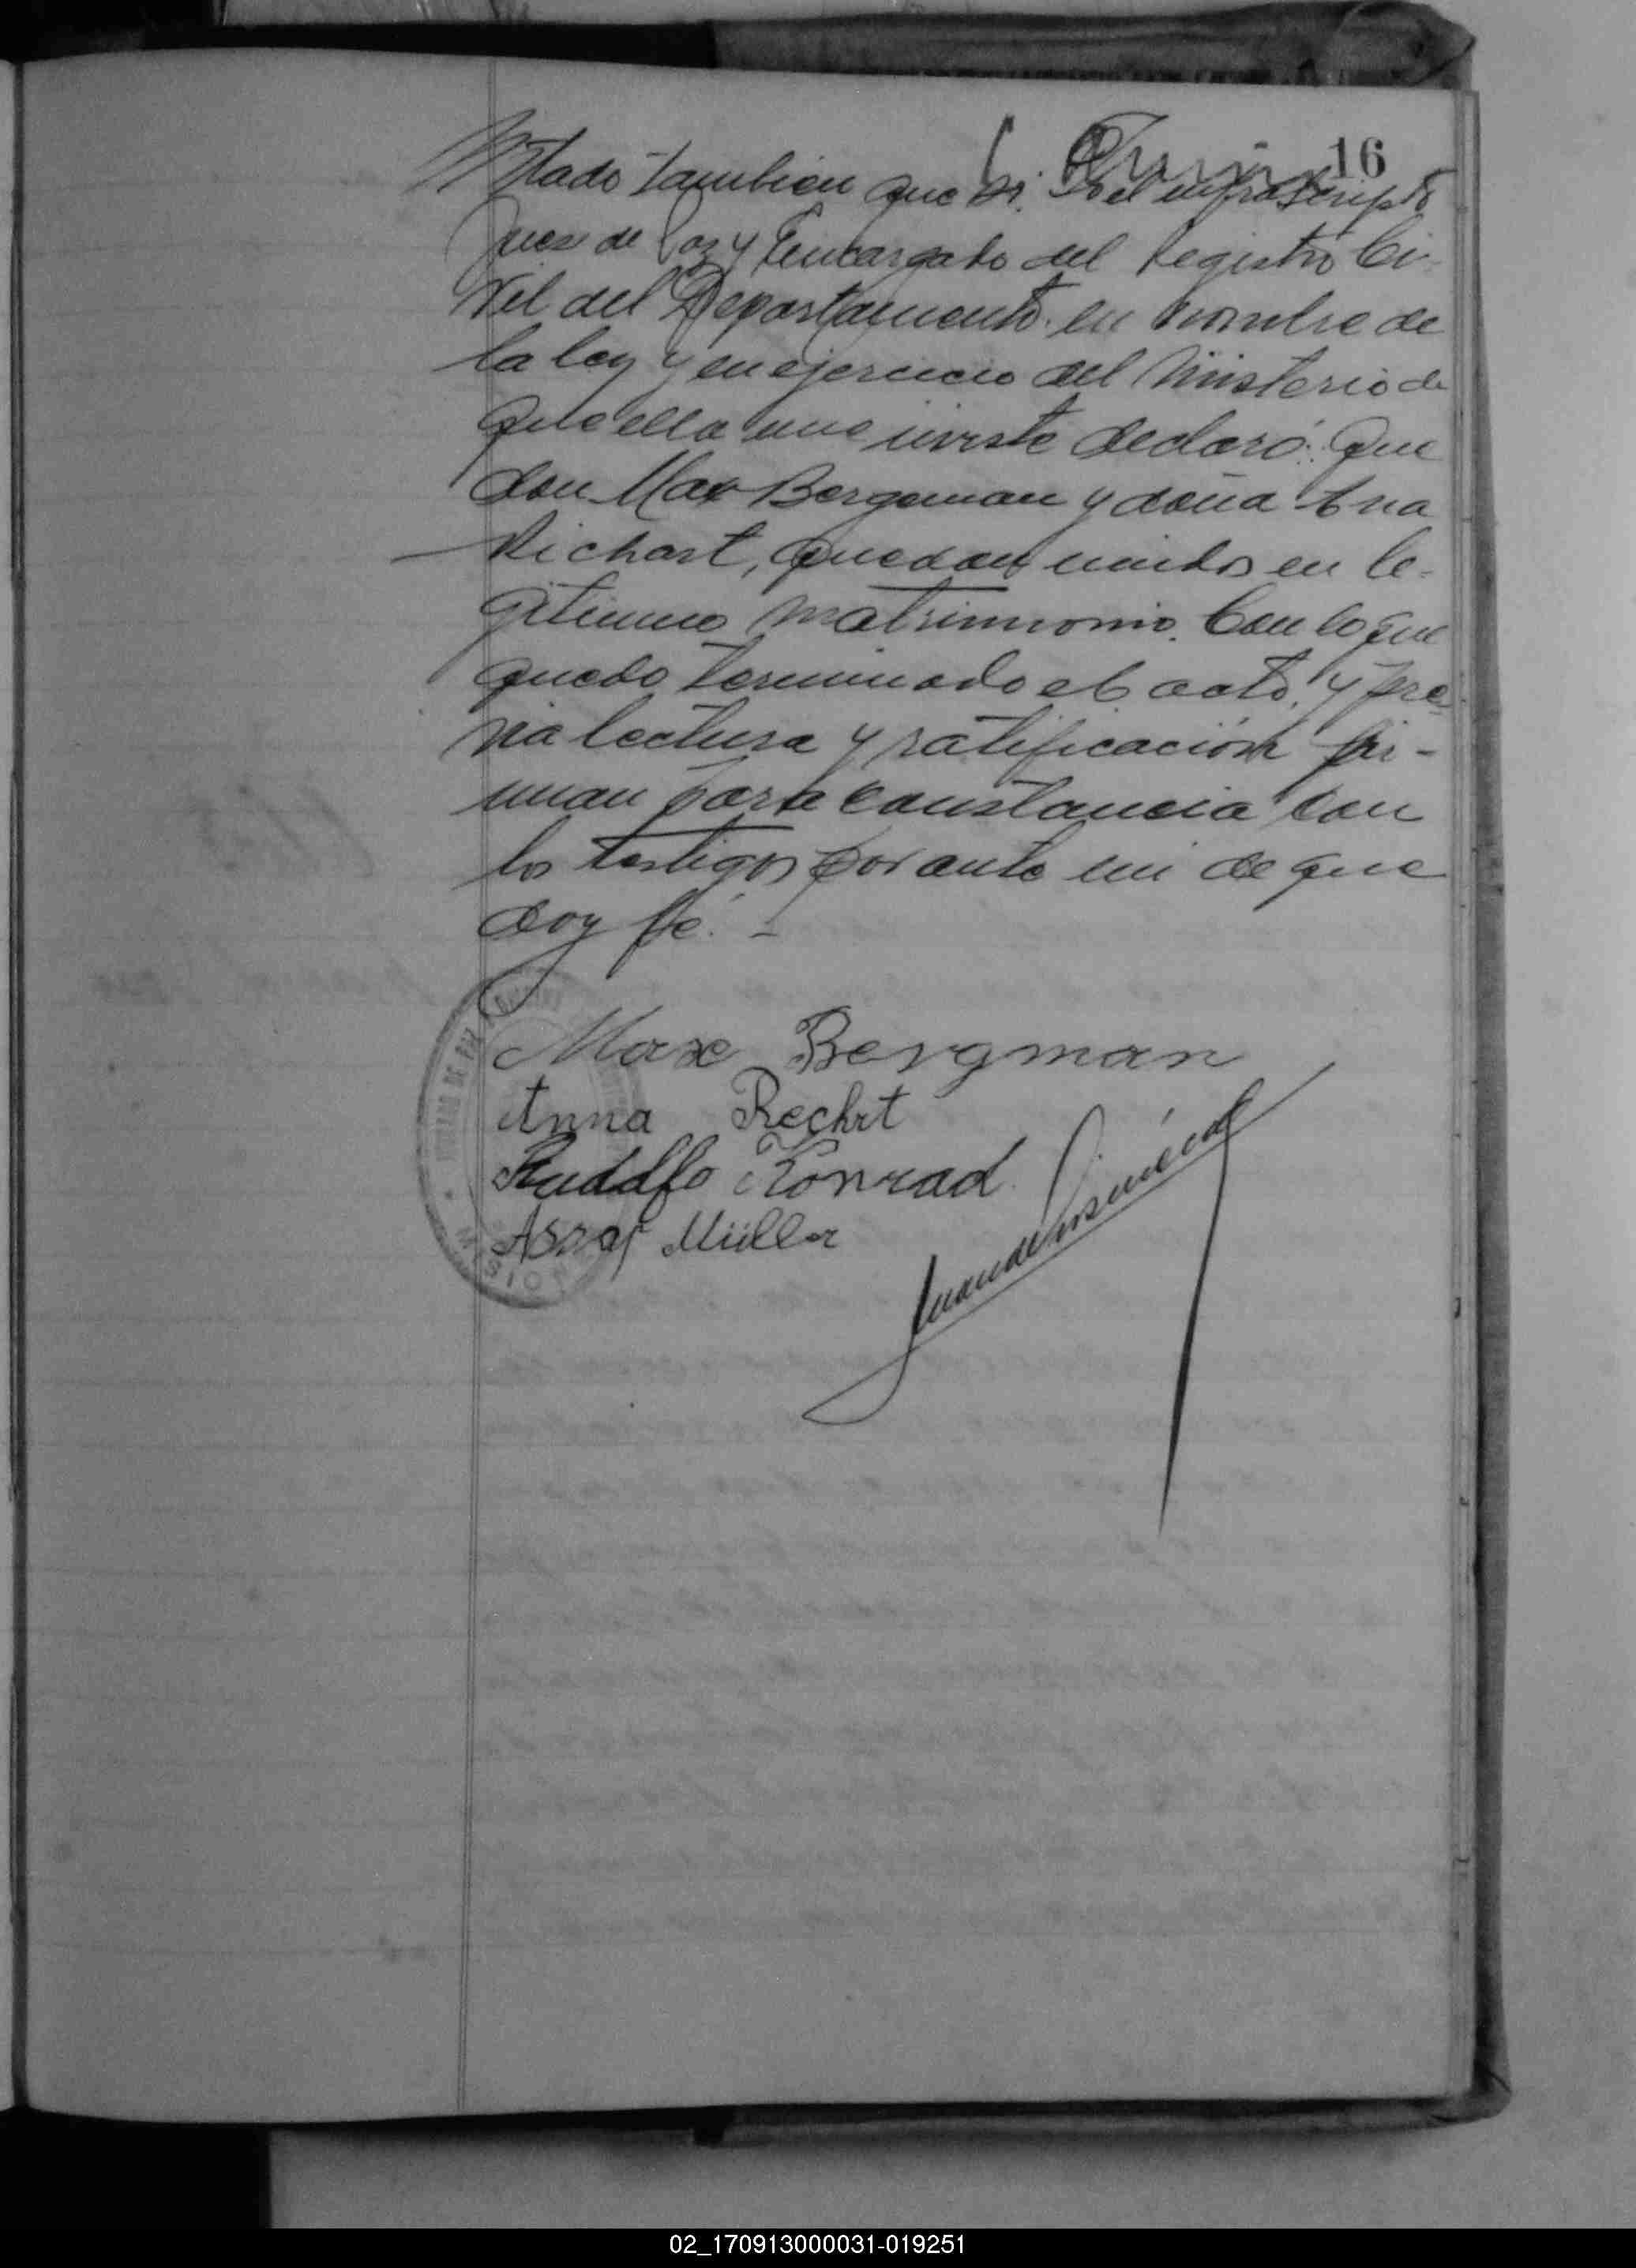 16
tado tambien que si. Yo el infrascripto
Juez de Paz y Encargado del Registro Ci-
vil del Departamento en nombre de
la ley y en ejercicio del Misterio de
que ella me inviste declaró: Que
don Max Bergeman y doña Ana
Richart, quedan unidos en le-
gitimo matrimonio. Con lo que
quedo terminado el acto, y pre-
via lectura y ratificación fir-
man para constancia con
los testigos por ante mi de que
doy fé. -
Max Bergman
Anna Rechrt
Rudolfo Konrad
Müller
JUZGADO DE PAZ
MISIONES
02_170913000031-019251